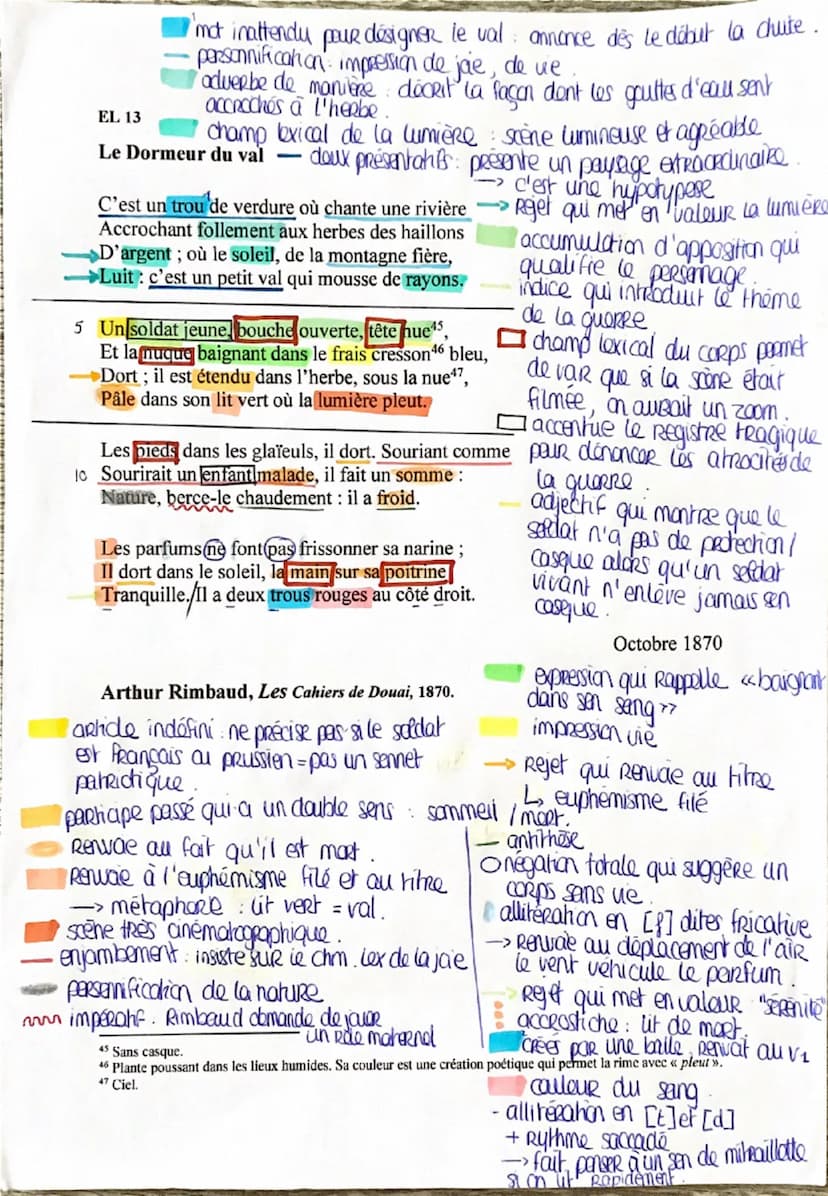 mot inattendu pour désigner le val : annonce dès le début la chute.
personnification : impression de joie, de vie.
adverbe de manière : décrit la façon dont les gouttes d'eau sont
accrochés à l'herbe.
EL 13
champ lexical de la lumière : scène lumineuse et agréable
Le Dormeur du val
deux présentatifs : présente un paysage extraordinaire.
→ c'est une hypotypose
C'est un trou¹ de verdure où chante une rivière
Accrochant follement aux herbes des haillons
D'argent ; où le soleil, de la montagne fière,
Luit : c'est un petit val qui mousse de rayons.
5 Un soldat jeune, bouche ouverte, tête nue⁴⁵,
Et la nuque baignant dans le frais cresson⁴⁶ bleu,
Dort ; il est étendu dans l'herbe, sous la nue⁴⁷,
Pâle dans son lit vert où la lumière pleut.
Les pieds dans les glaïeuls, il dort. Souriant comme
10 Sourirait un enfant malade, il fait un somme :
Nature, berce-le chaudement : il a froid.
Les parfums ne font pas frissonner sa narine ;
Il dort dans le soleil, la main sur sa poitrine
Tranquille./Il a deux trous rouges au côté droit.
→ Rejet qui met en valeur la lumière
accumulation d'apposition qui
qualifie le personnage.
indice qui introduit le thème
de la guerre
champ lexical du corps permet
de voir que si la scène était
filmée, on aurait un zoom.
accentue le registre tragique
pour dénoncer les atrocités de
la guerre.
adjectif qui montre que le
soldat n'a pas de protection/
casque alors qu'un soldat
vivant n'enlève jamais son
casque.
Octobre 1870
Arthur Rimbaud, Les Cahiers de Douai, 1870.
article indéfini : ne précise pas si le soldat
est français ou prussion = pas un sonnet
patriotique.
participe passé qui a un double sens : sommeil / mort.
Renvoie au fait qu'il est mort.
Renvoie à l'euphémisme filé et au titre
→ métaphore : lit vert = val.
scène très cinématographique.
enjambement : insiste sur le chm. lex de la joie
personnification de la nature
impératif. Rimbaud demande de jouer
un rôle maternel
expression qui rappelle «baignant
dans son sang»
impression vie
→ Rejet qui renvoie au titre
↳ euphémisme filé
antithèse
négation totale qui suggère un
corps sans vie.
allitération en [f] dites fricative
→ Renvoie au déplacement de l'air
le vent véhicule le parfum.
→ Rejet qui met en valeur "sérénité"
acrostiche : lit de mort.
créés par une balle, renvoit au v1
⁴⁵ Sans casque.
⁴⁶ Plante poussant dans les lieux humides. Sa couleur est une création poétique qui permet la rime avec « pleut ».
⁴⁷ Ciel.
couleur du sang
- allitération en [t] et [d]
+ Rythme saccadé
→ fait penser à un son de mitraillette
si on lit rapidement.